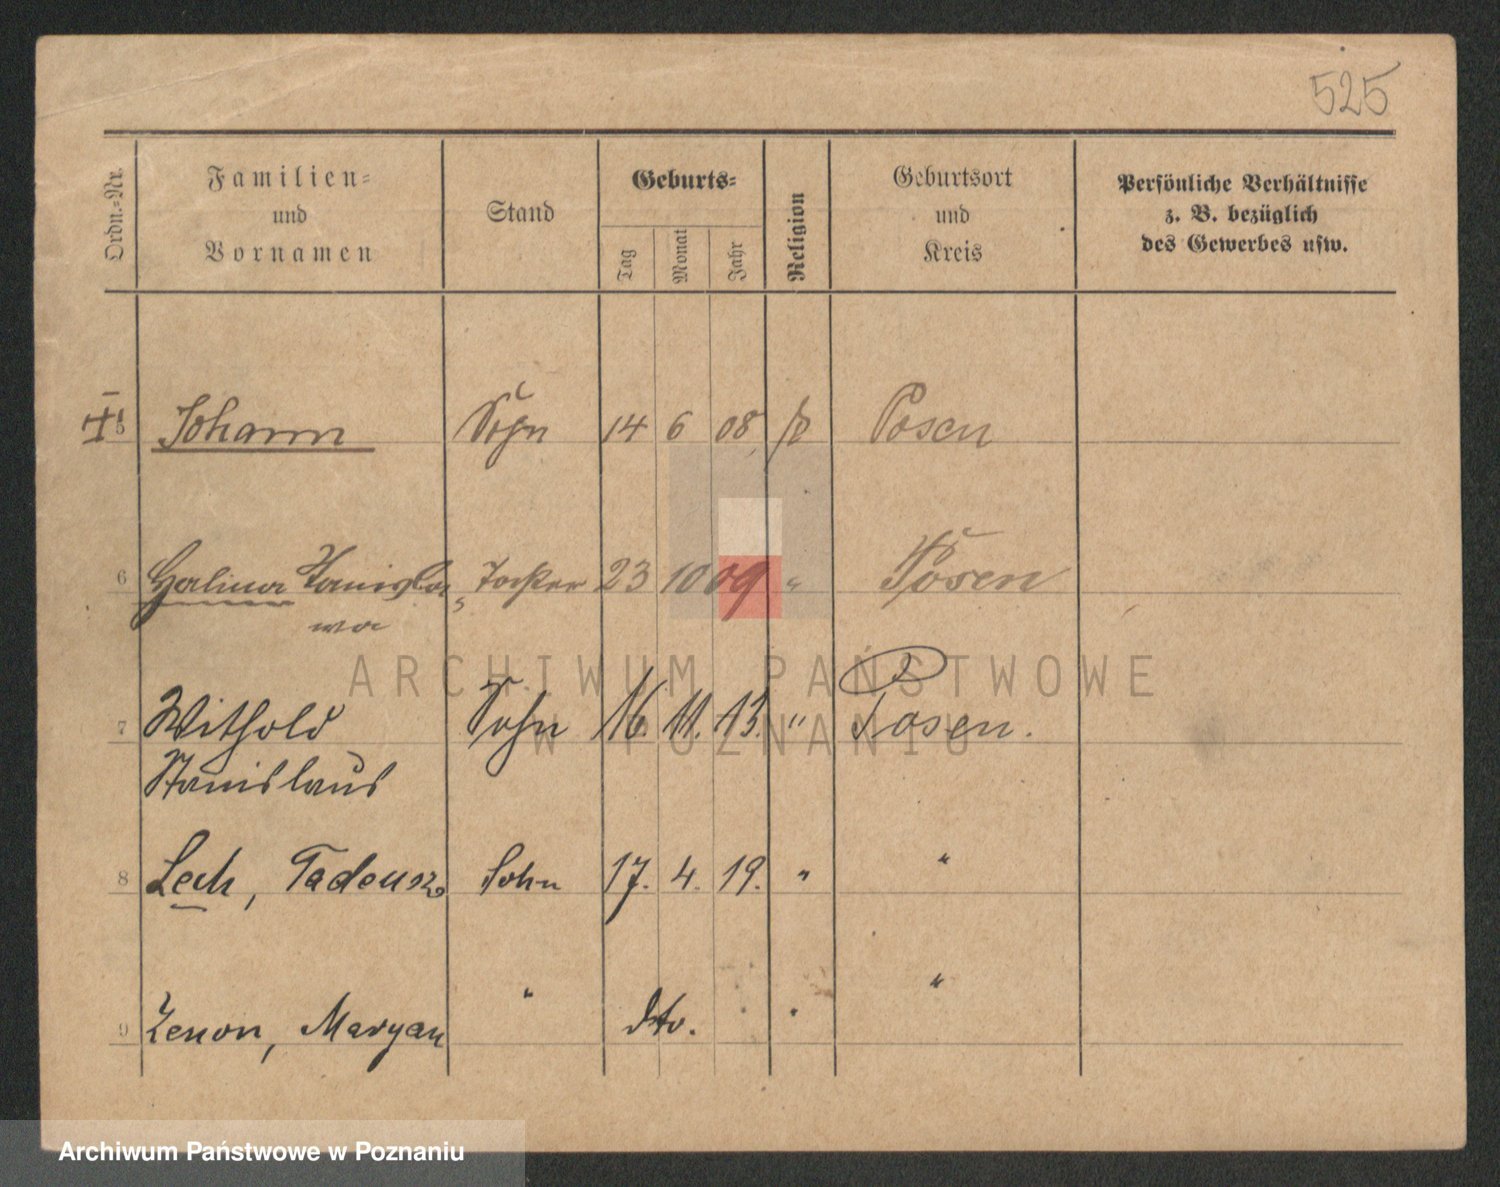 525
Ordn.-Nr.
Familien-
und
Vornamen
Stand
Geburts-
Tag
Monat
Jahr
Religion
Geburtsort
und
Kreis
Persönliche Verhältnisse
z. B. bezüglich
des Gewerbes usw.
5 Johann Sohn 14 6 08 Posen
6 Halina Stanisla Tochter 23 10 09 " Posen
wa
7 Withold Sohn 16. 11. 13. " Posen.
Stanislaus
8 Lech, Tadeusz Sohn 17. 4. 19. " "
9 Zenon, Maryan " dto. "
ARCHIWUM PAŃSTWOWE
W POZNANIU
Archiwum Państwowe w Poznaniu